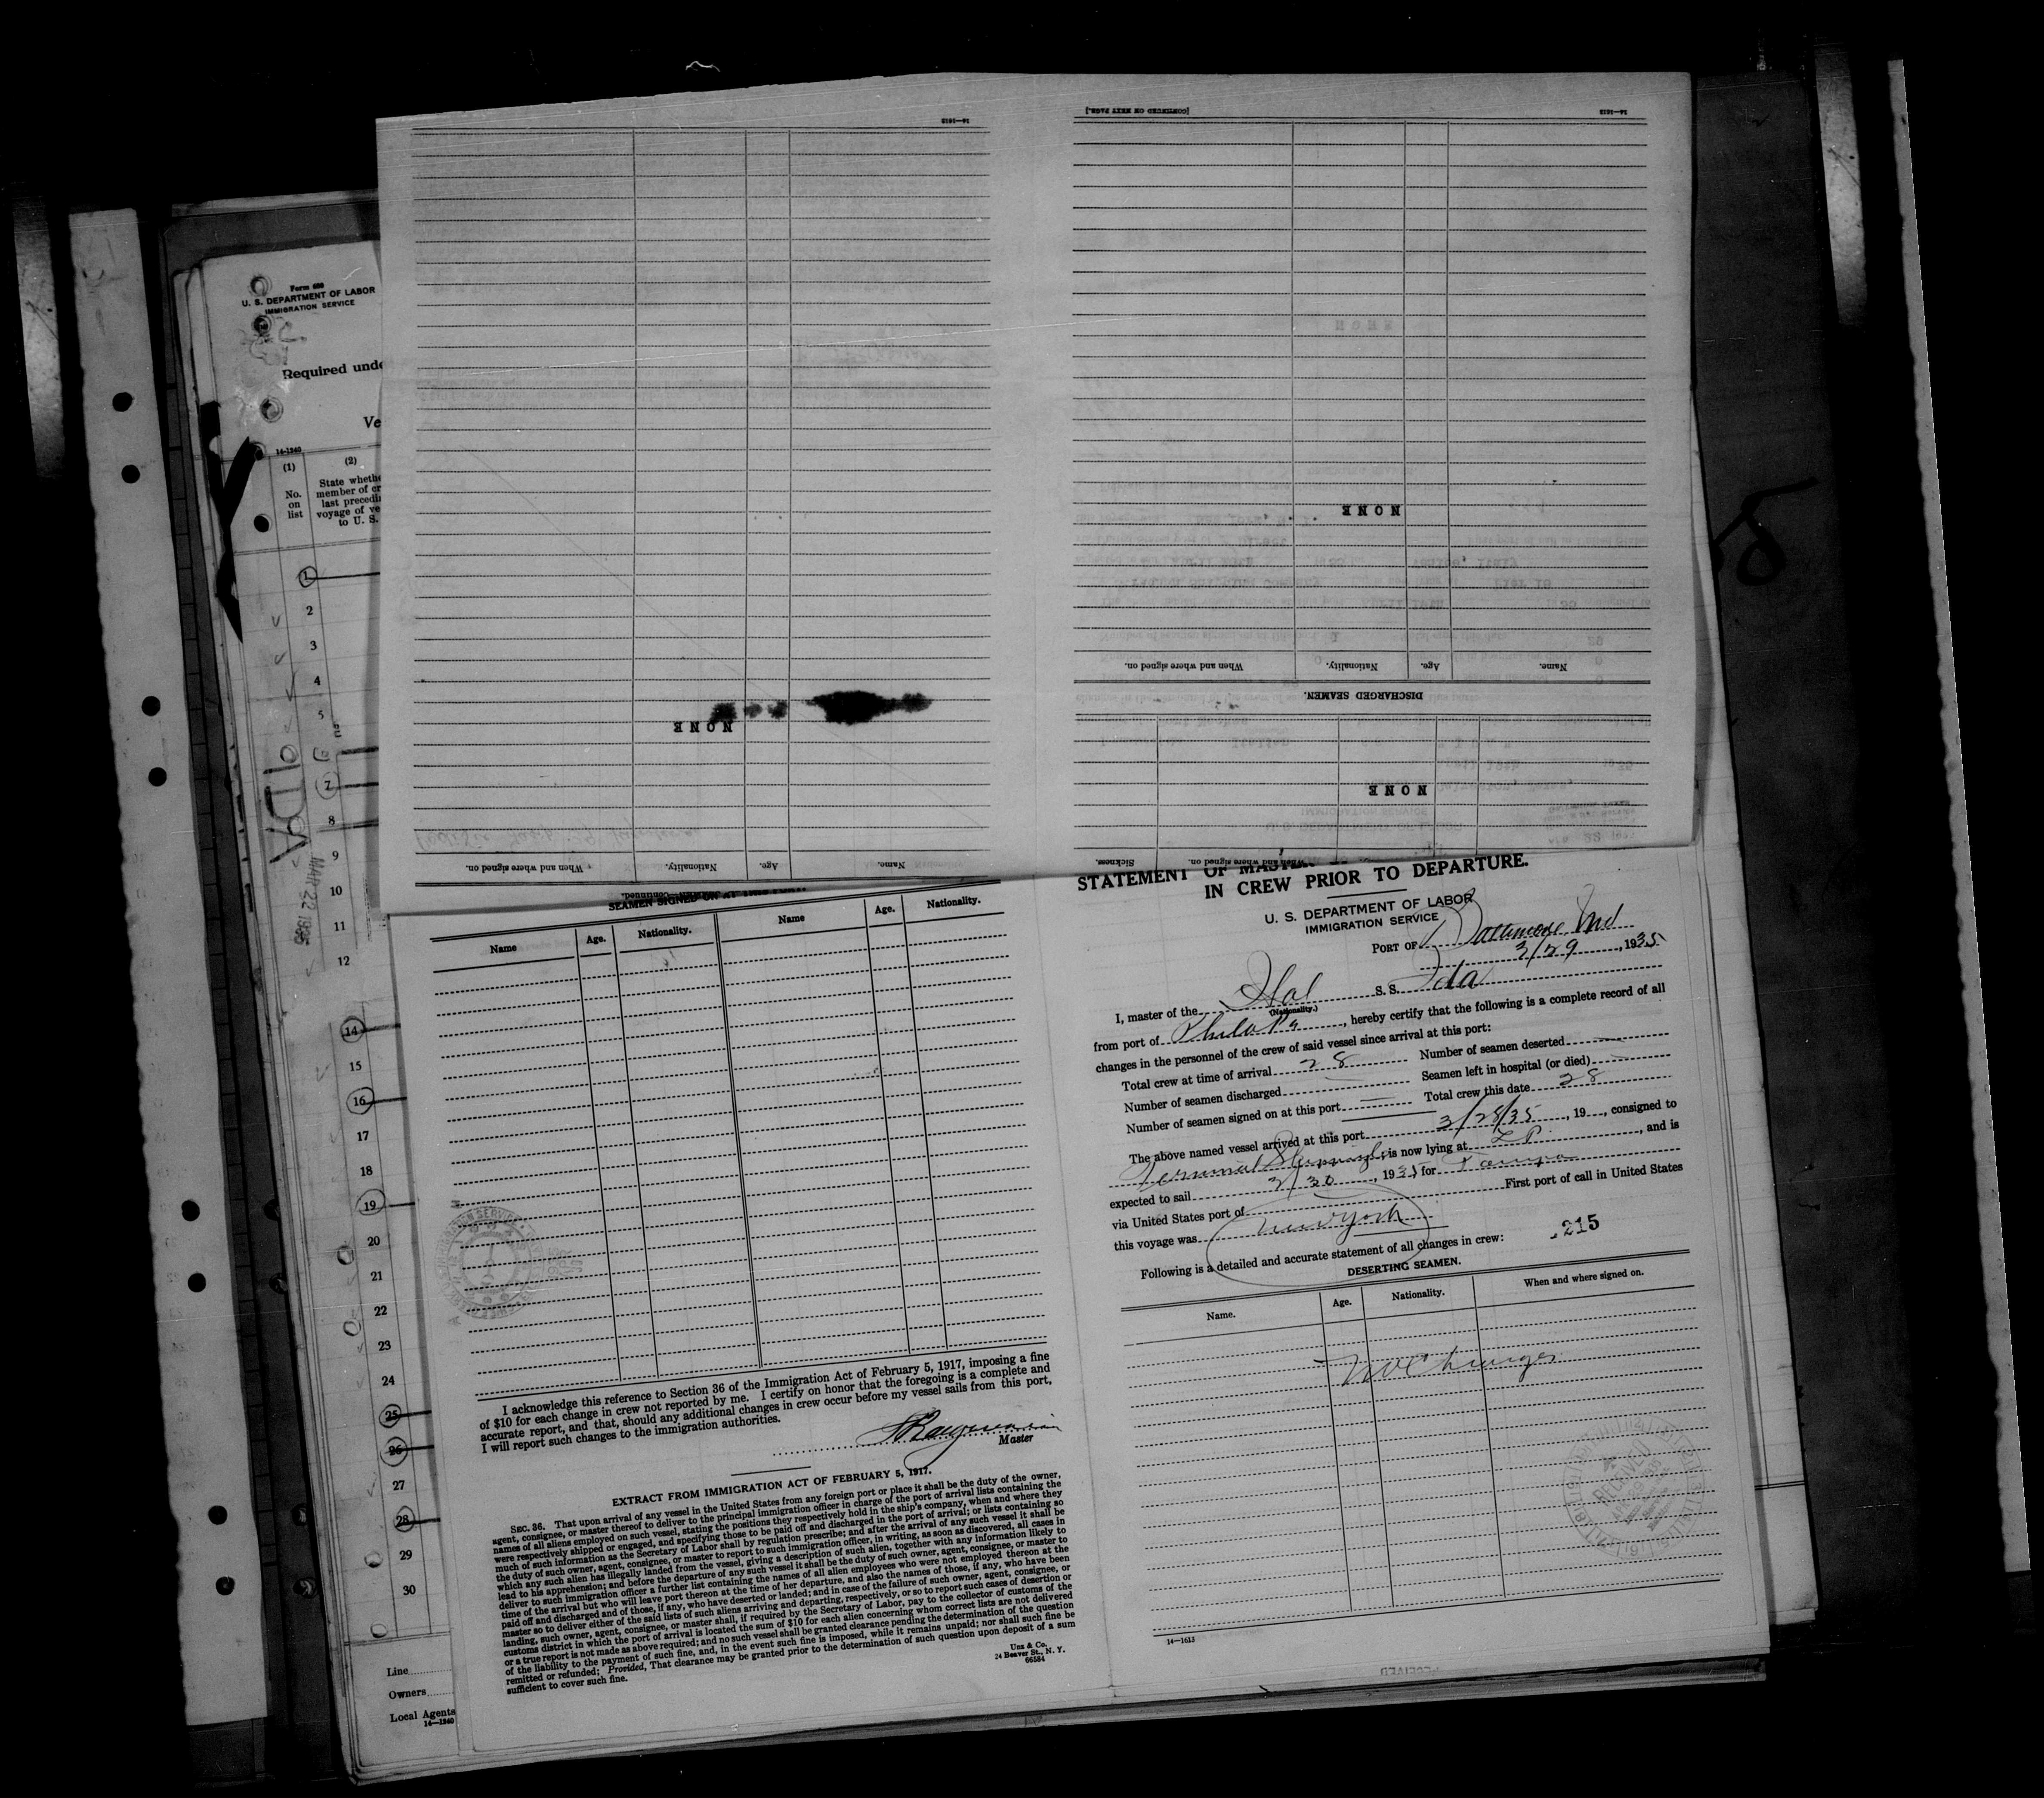 [CONTINUED ON NEXT PAGE.]
14—1613
14—1613
NONE
NONE
When and where signed on. Nationality. Age. Name.
DISCHARGED SEAMEN.
NONE
Sickness. When and where signed on.
When and where signed on. Nationality. Age. Name.
Continued.
Form 680
U. S. DEPARTMENT OF LABOR
IMMIGRATION SERVICE
Required unde
Ve
14-1240
(1) (2)
No. on list
State whethe
member of cr
last precedi
voyage of ve
to U. S.
1
2
3
4
5
7
8
9
10
11
12
14
15
16
17
18
19
20
21
22
23
24
25
26
27
28
29
30
IDA
MAR 22 1935
Line
Owners
Local Agents
14—1240
Name Age. Nationality. Name Age. Nationality.
I acknowledge this reference to Section 36 of the Immigration Act of February 5, 1917, imposing a fine
of $10 for each change in crew not reported by me. I certify on honor that the foregoing is a complete and
accurate report, and that, should any additional changes in crew occur before my vessel sails from this port,
I will report such changes to the immigration authorities.
Master
EXTRACT FROM IMMIGRATION ACT OF FEBRUARY 5, 1917.
SEC. 36. That upon arrival of any vessel in the United States from any foreign port or place it shall be the duty of the owner,
agent, consignee, or master thereof to deliver to the principal immigration officer in charge of the port of arrival lists containing the
names of all aliens employed on such vessel, stating the positions they respectively hold in the ship's company, when and where they
were respectively shipped or engaged, and specifying those to be paid off and discharged in the port of arrival; or lists containing so
much of such information as the Secretary of Labor shall by regulation prescribe; and after the arrival of any such vessel it shall be
the duty of such owner, agent, consignee, or master to report to such immigration officer, in writing, as soon as discovered, all cases in
which any such alien has illegally landed from the vessel, giving a description of such alien, together with any information likely to
lead to his apprehension; and before the departure of any such vessel it shall be the duty of such owner, agent, consignee, or master to
deliver to such immigration officer a further list containing the names of all alien employees who were not employed thereon at the
time of the arrival but who will leave port thereon at the time of her departure, and also the names of those, if any, who have been
paid off and discharged and of those, if any, who have deserted or landed; and in case of the failure of such owner, agent, consignee, or
master so to deliver either of the said lists of such aliens arriving and departing, respectively, or so to report such cases of desertion or
landing, such owner, agent, consignee, or master shall, if required by the Secretary of Labor, pay to the collector of customs of the
customs district in which the port of arrival is located the sum of $10 for each alien concerning whom correct lists are not delivered
or a true report is not made as above required; and no such vessel shall be granted clearance pending the determination of the question
of the liability to the payment of such fine, and, in the event such fine is imposed, while it remains unpaid; nor shall such fine be
remitted or refunded; Provided, That clearance may be granted prior to the determination of such question upon deposit of a sum
sufficient to cover such fine.
Unz & Co.
24 Beaver St., N. Y.
66584
STATEMENT OF
IN CREW PRIOR TO DEPARTURE.
U. S. DEPARTMENT OF LABOR
IMMIGRATION SERVICE
PORT OF Baltimore Md
3/29, 1935
I, master of the Ital S. S. Ida
(Nationality.)
from port of Phila Pa, hereby certify that the following is a complete record of all
changes in the personnel of the crew of said vessel since arrival at this port:
Total crew at time of arrival 28 Number of seamen deserted —
Number of seamen discharged — Seamen left in hospital (or died) —
Number of seamen signed on at this port — Total crew this date 28
The above named vessel arrived at this port 3/28/35, 19, consigned to
Terminal is now lying at , and is
expected to sail 3/30, 1935, for Tampa
via United States port of First port of call in United States
this voyage was New York
Following is a detailed and accurate statement of all changes in crew:
215
DESERTING SEAMEN.
Name. Age. Nationality. When and where signed on.
No Changes
RECEIVED
14—1613
RECEIVED